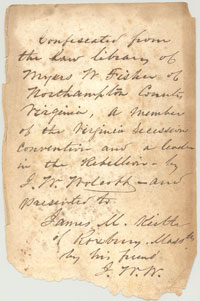 Confiscated from
the Law library of
Myers W. Fisher of
Northampton County
Virginia, a member
of the Virginia secession
Convention and a leader
in the Rebellion - by
J. W. Wolcott - and
presented to
James M. Keith
of Roxbury, Mass
by his friend
J. W. W.